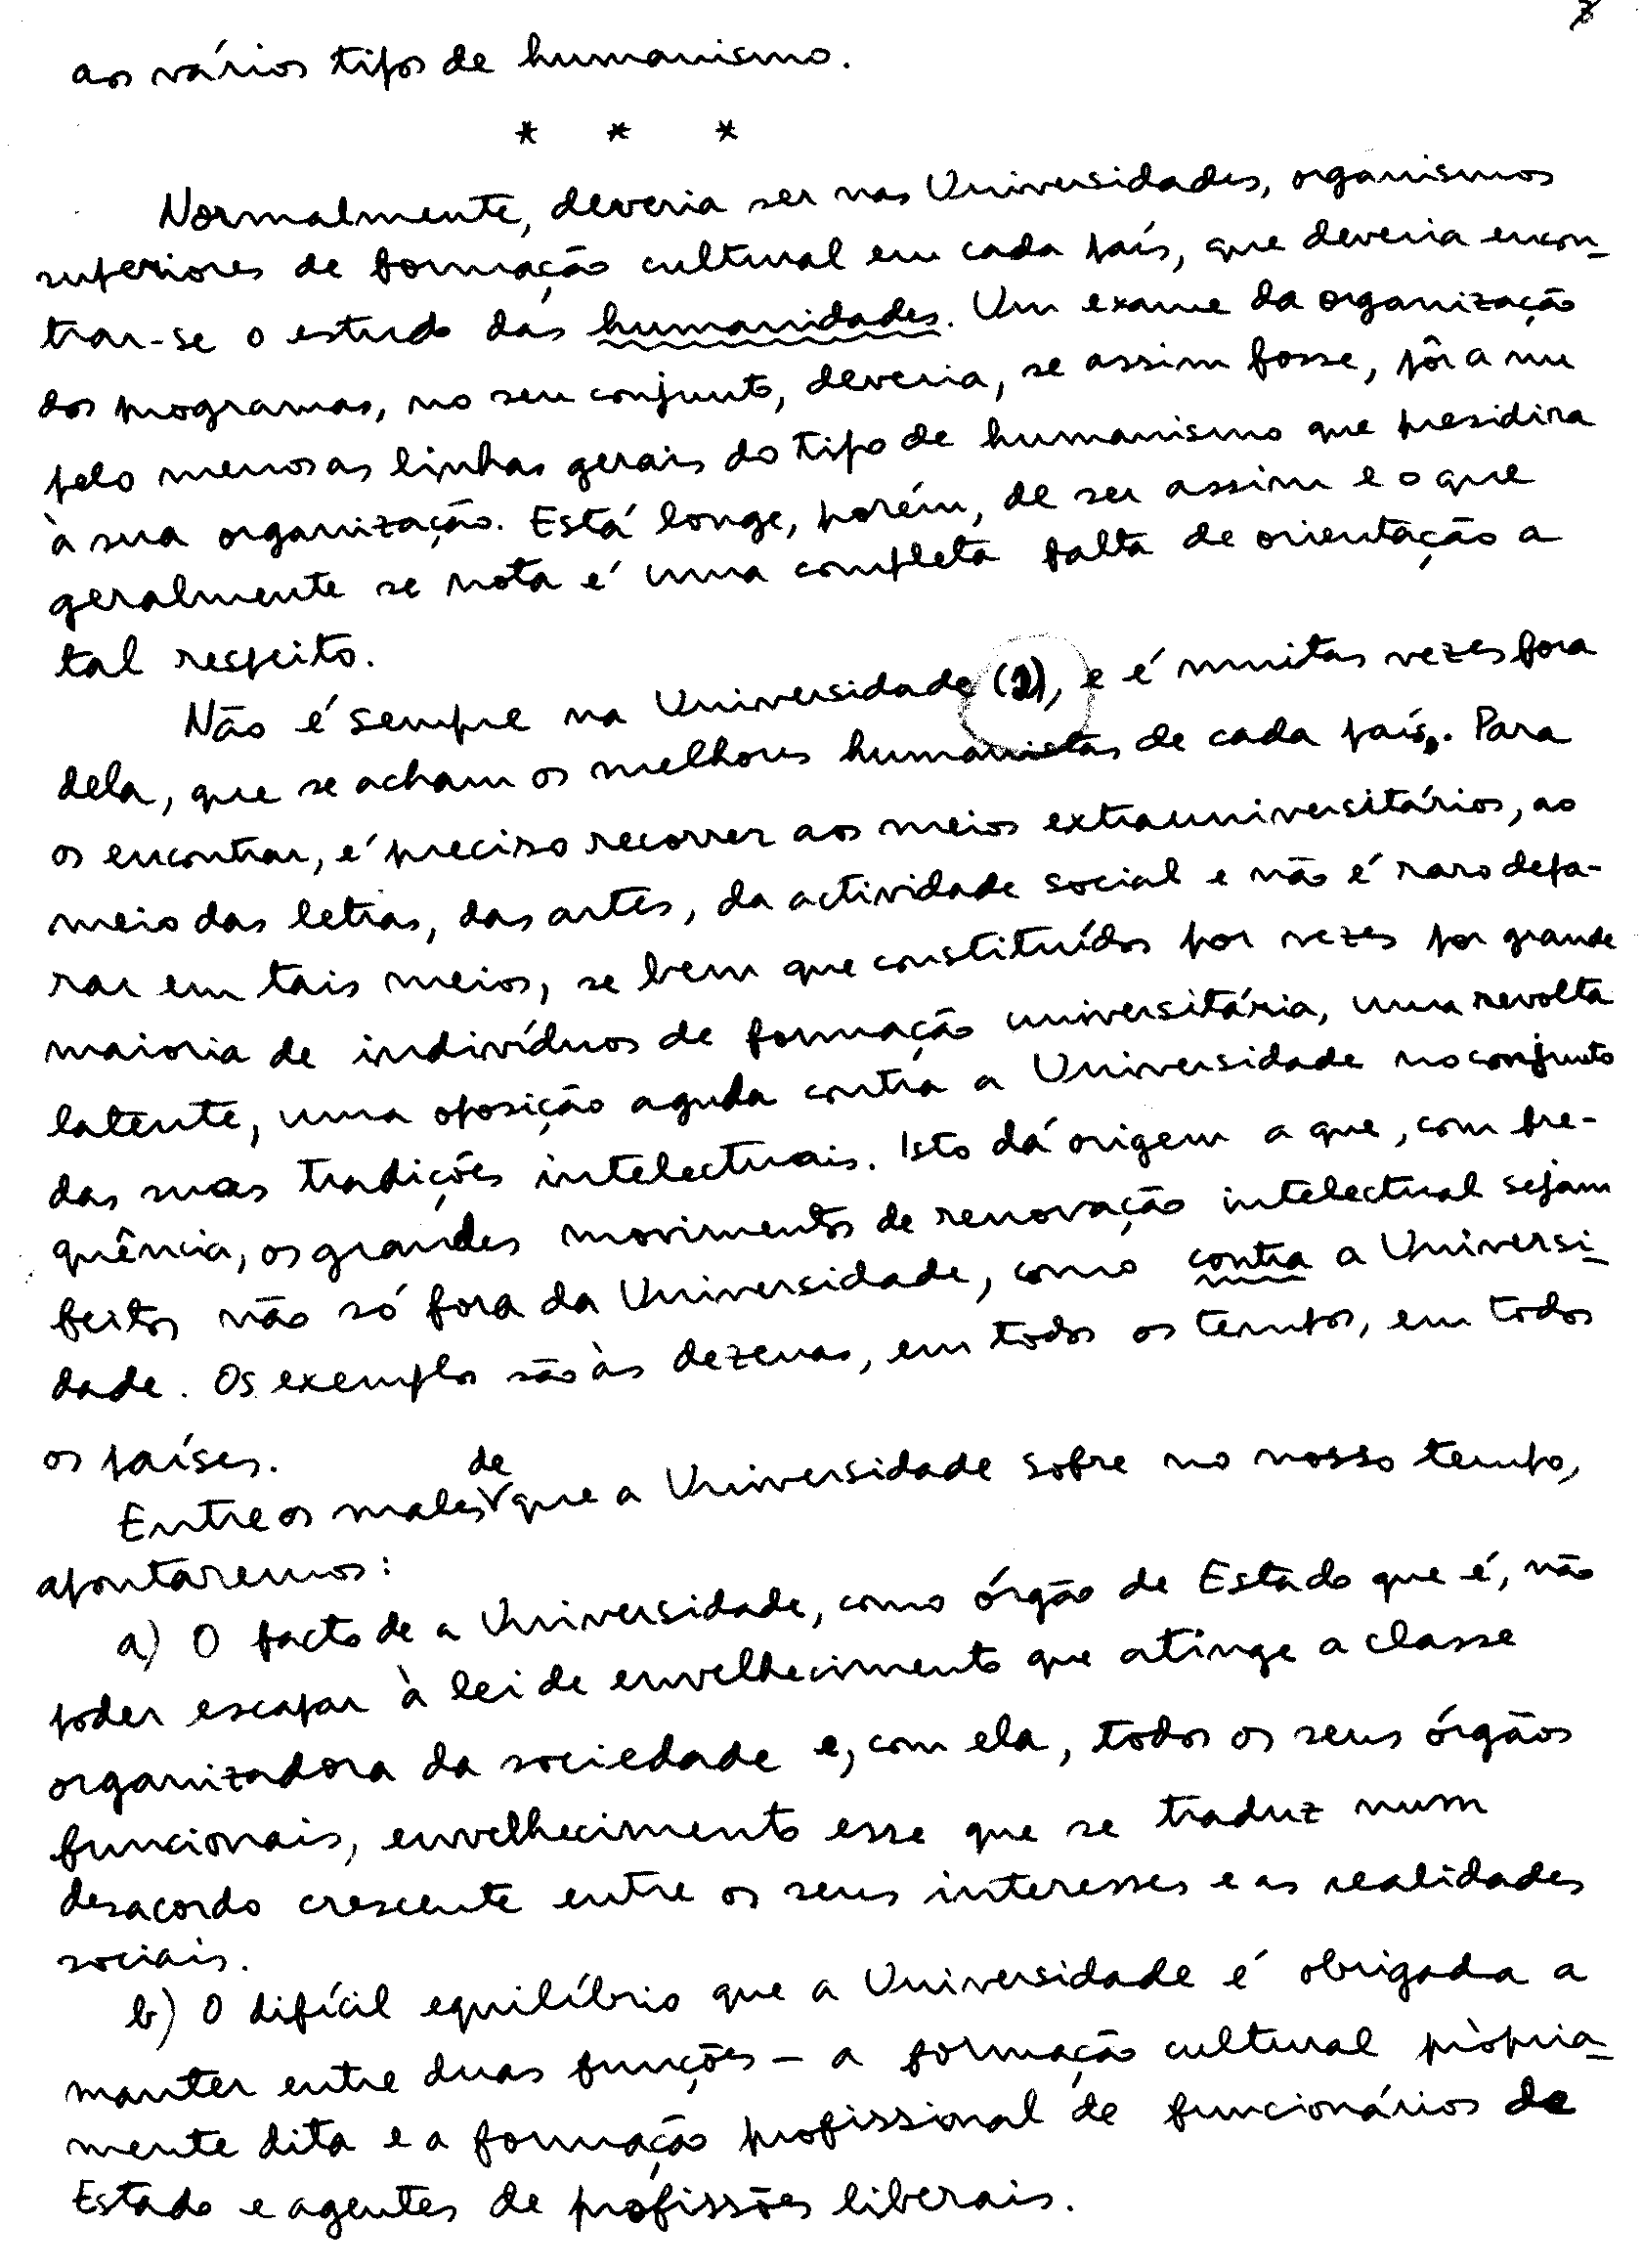 aos vários tipos de humanismo.
* * *
Normalmente, deveria ser nas Universidades, organismos
superiores de formação cultural em cada país, que deveria encon-
trar-se o estudo das humanidades. Um exame da organização
dos programas, no seu conjunto, deveria, se assim fosse, pôr a nu
pelo menos as linhas gerais do tipo de humanismo que presidira
à sua organização. Está longe, porém, de ser assim e o que
geralmente se nota é uma completa falta de orientação a
tal respeito.
Não é sempre na Universidade (2), e é muitas vezes fora
dela, que se acham os melhores humanistas de cada país. Para
os encontrar, é preciso recorrer aos meios extrauniversitários, ao
meio das letras, das artes, da actividade social e não é raro depa-
rar em tais meios, se bem que constituídos por vezes por grande
maioria de indivíduos de formação universitária, uma revolta
latente, uma oposição aguda contra a Universidade no conjunto
das suas tradições intelectuais. Isto dá origem a que, com fre-
quência, os grandes movimentos de renovação intelectual sejam
feitos não só fora da Universidade, como contra a Universi-
dade. Os exemplos são às dezenas, em todos os tempos, em todos
os países.
Entre os males de que a Universidade sofre no nosso tempo,
apontaremos:
a) O facto de a Universidade, como órgão de Estado que é, não
poder escapar à lei de envelhecimento que atinge a classe
organizadora da sociedade e, com ela, todos os seus órgãos
funcionais, envelhecimento esse que se traduz num
desacordo crescente entre os seus interesses e as realidades
sociais.
b) O difícil equilíbrio que a Universidade é obrigada a
manter entre duas funções — a formação cultural pròpria-
mente dita e a formação profissional de funcionários de
Estado e agentes de profissões liberais.